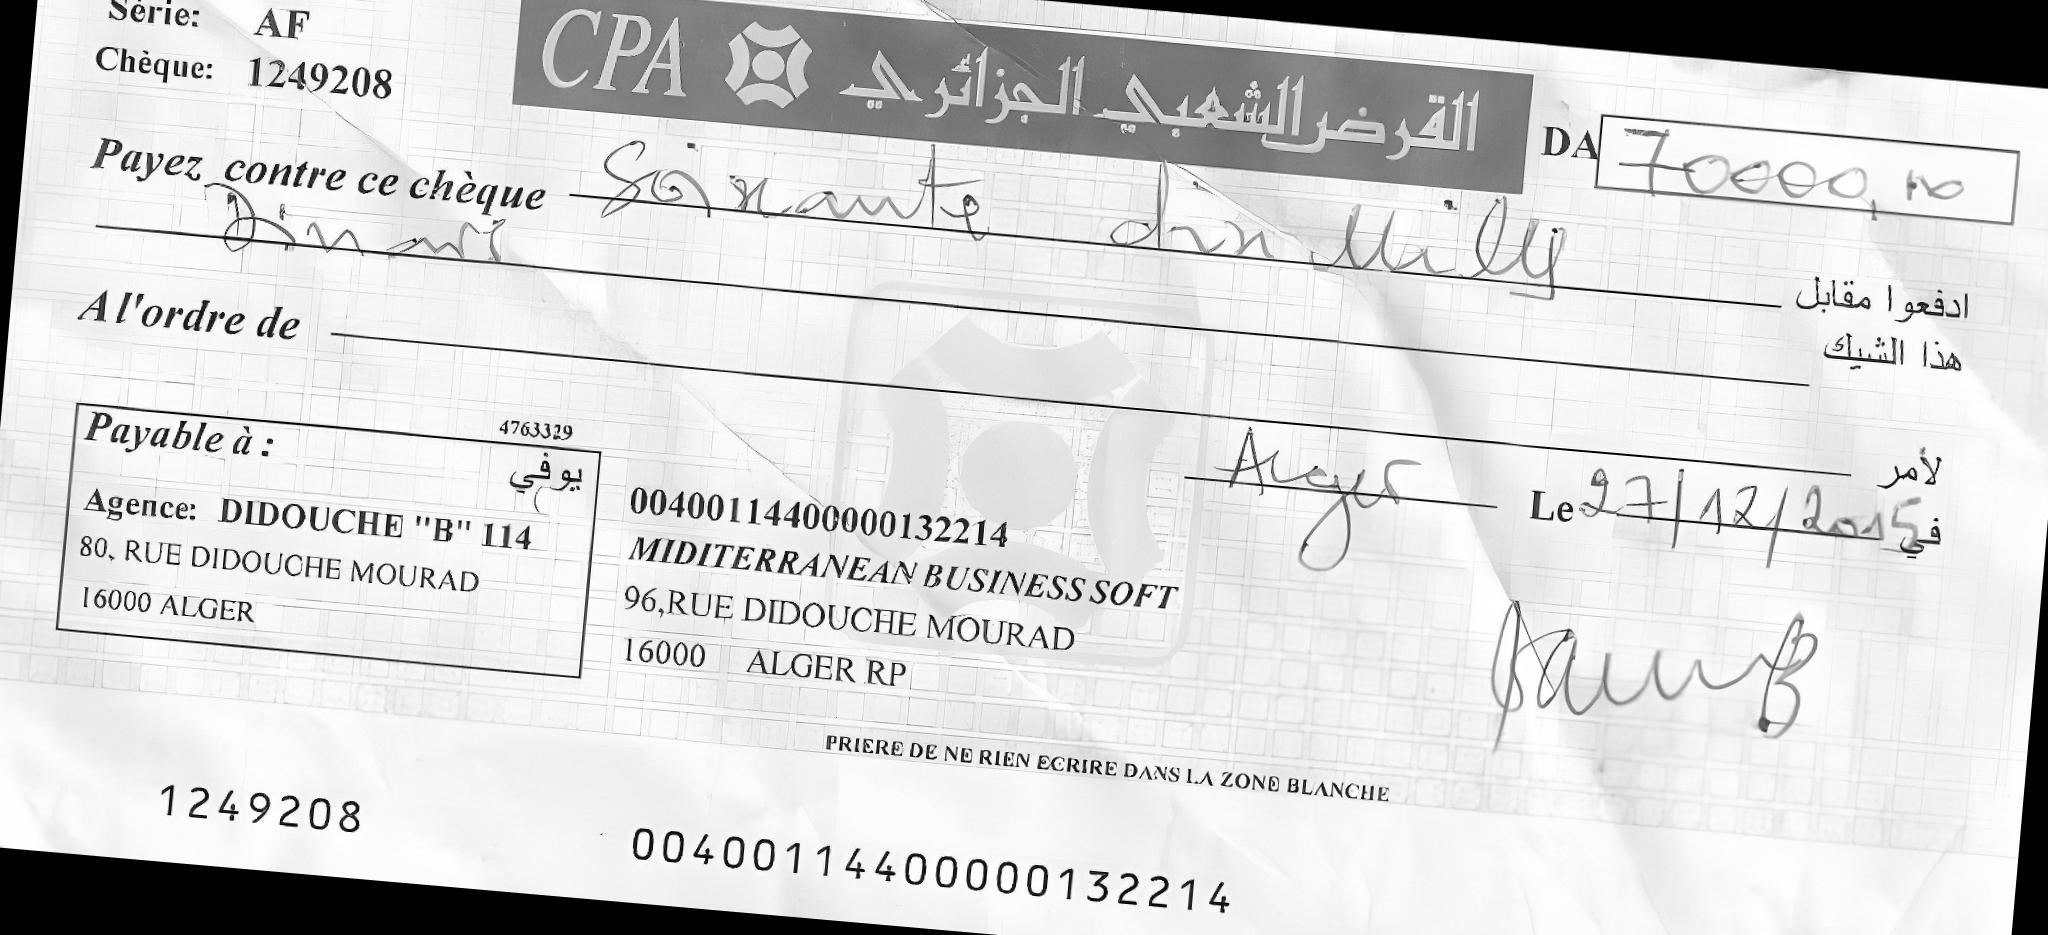 Série: AF
Chèque: 1249208
CPA القرض الشعبي الجزائري
DA 70000,00
Payez contre ce chèque Soixante dix Mille
ادفعوا مقابل
Dinars
هذا الشيك
A l'ordre de
لأمر
Payable à : 4763329
يوفي
Agence: DIDOUCHE "B" 114
80, RUE DIDOUCHE MOURAD
16000 ALGER
Alger Le 27/12/2015 في
00400114400000132214
MIDITERRANEAN BUSINESS SOFT
96,RUE DIDOUCHE MOURAD
16000 ALGER RP
PRIERE DE NE RIEN ECRIRE DANS LA ZONE BLANCHE
1249208
00400114400000132214